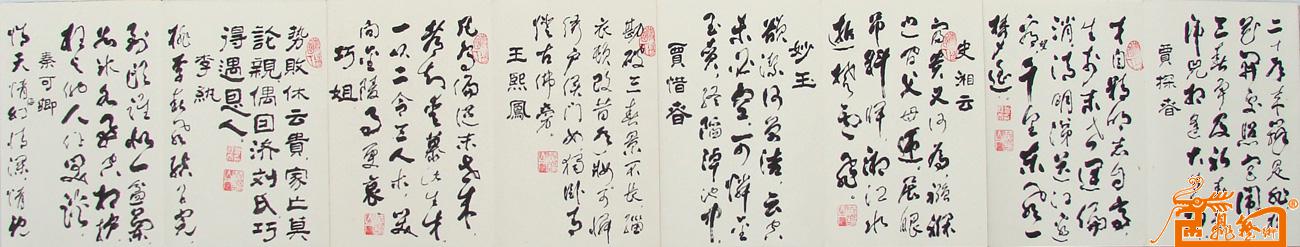 二十年来辨是非榴
花開处照宫闱
三春争及初春
虎兕相逢大
賈探春
才自精明志自高
生于末世運偏
消清明涕送江边
千里东风一
梦遥
史湘云
富贵又何為襁褓
之間父母違展眼
吊斜暉湘江水
逝楚云飛
妙玉
欲潔何曾潔云空
未必空可憐金
玉質終陷淖泥中
賈惜春
勘破三春景不长缁
衣顿改昔年妝可憐
绣户侯门女獨卧青
燈古佛旁
王熙鳳
凡鸟偏從末世来
都知愛慕此生才
一从二令三人木哭
向金陵事更哀
巧姐
勢敗休云貴家亡莫
論親偶因济刘氏巧
得遇恩人
李紈
桃李春风结子完
到頭誰似一盆蘭
如冰水好空相妒
枉与他人作笑談
秦可卿
情天情幻情深情也